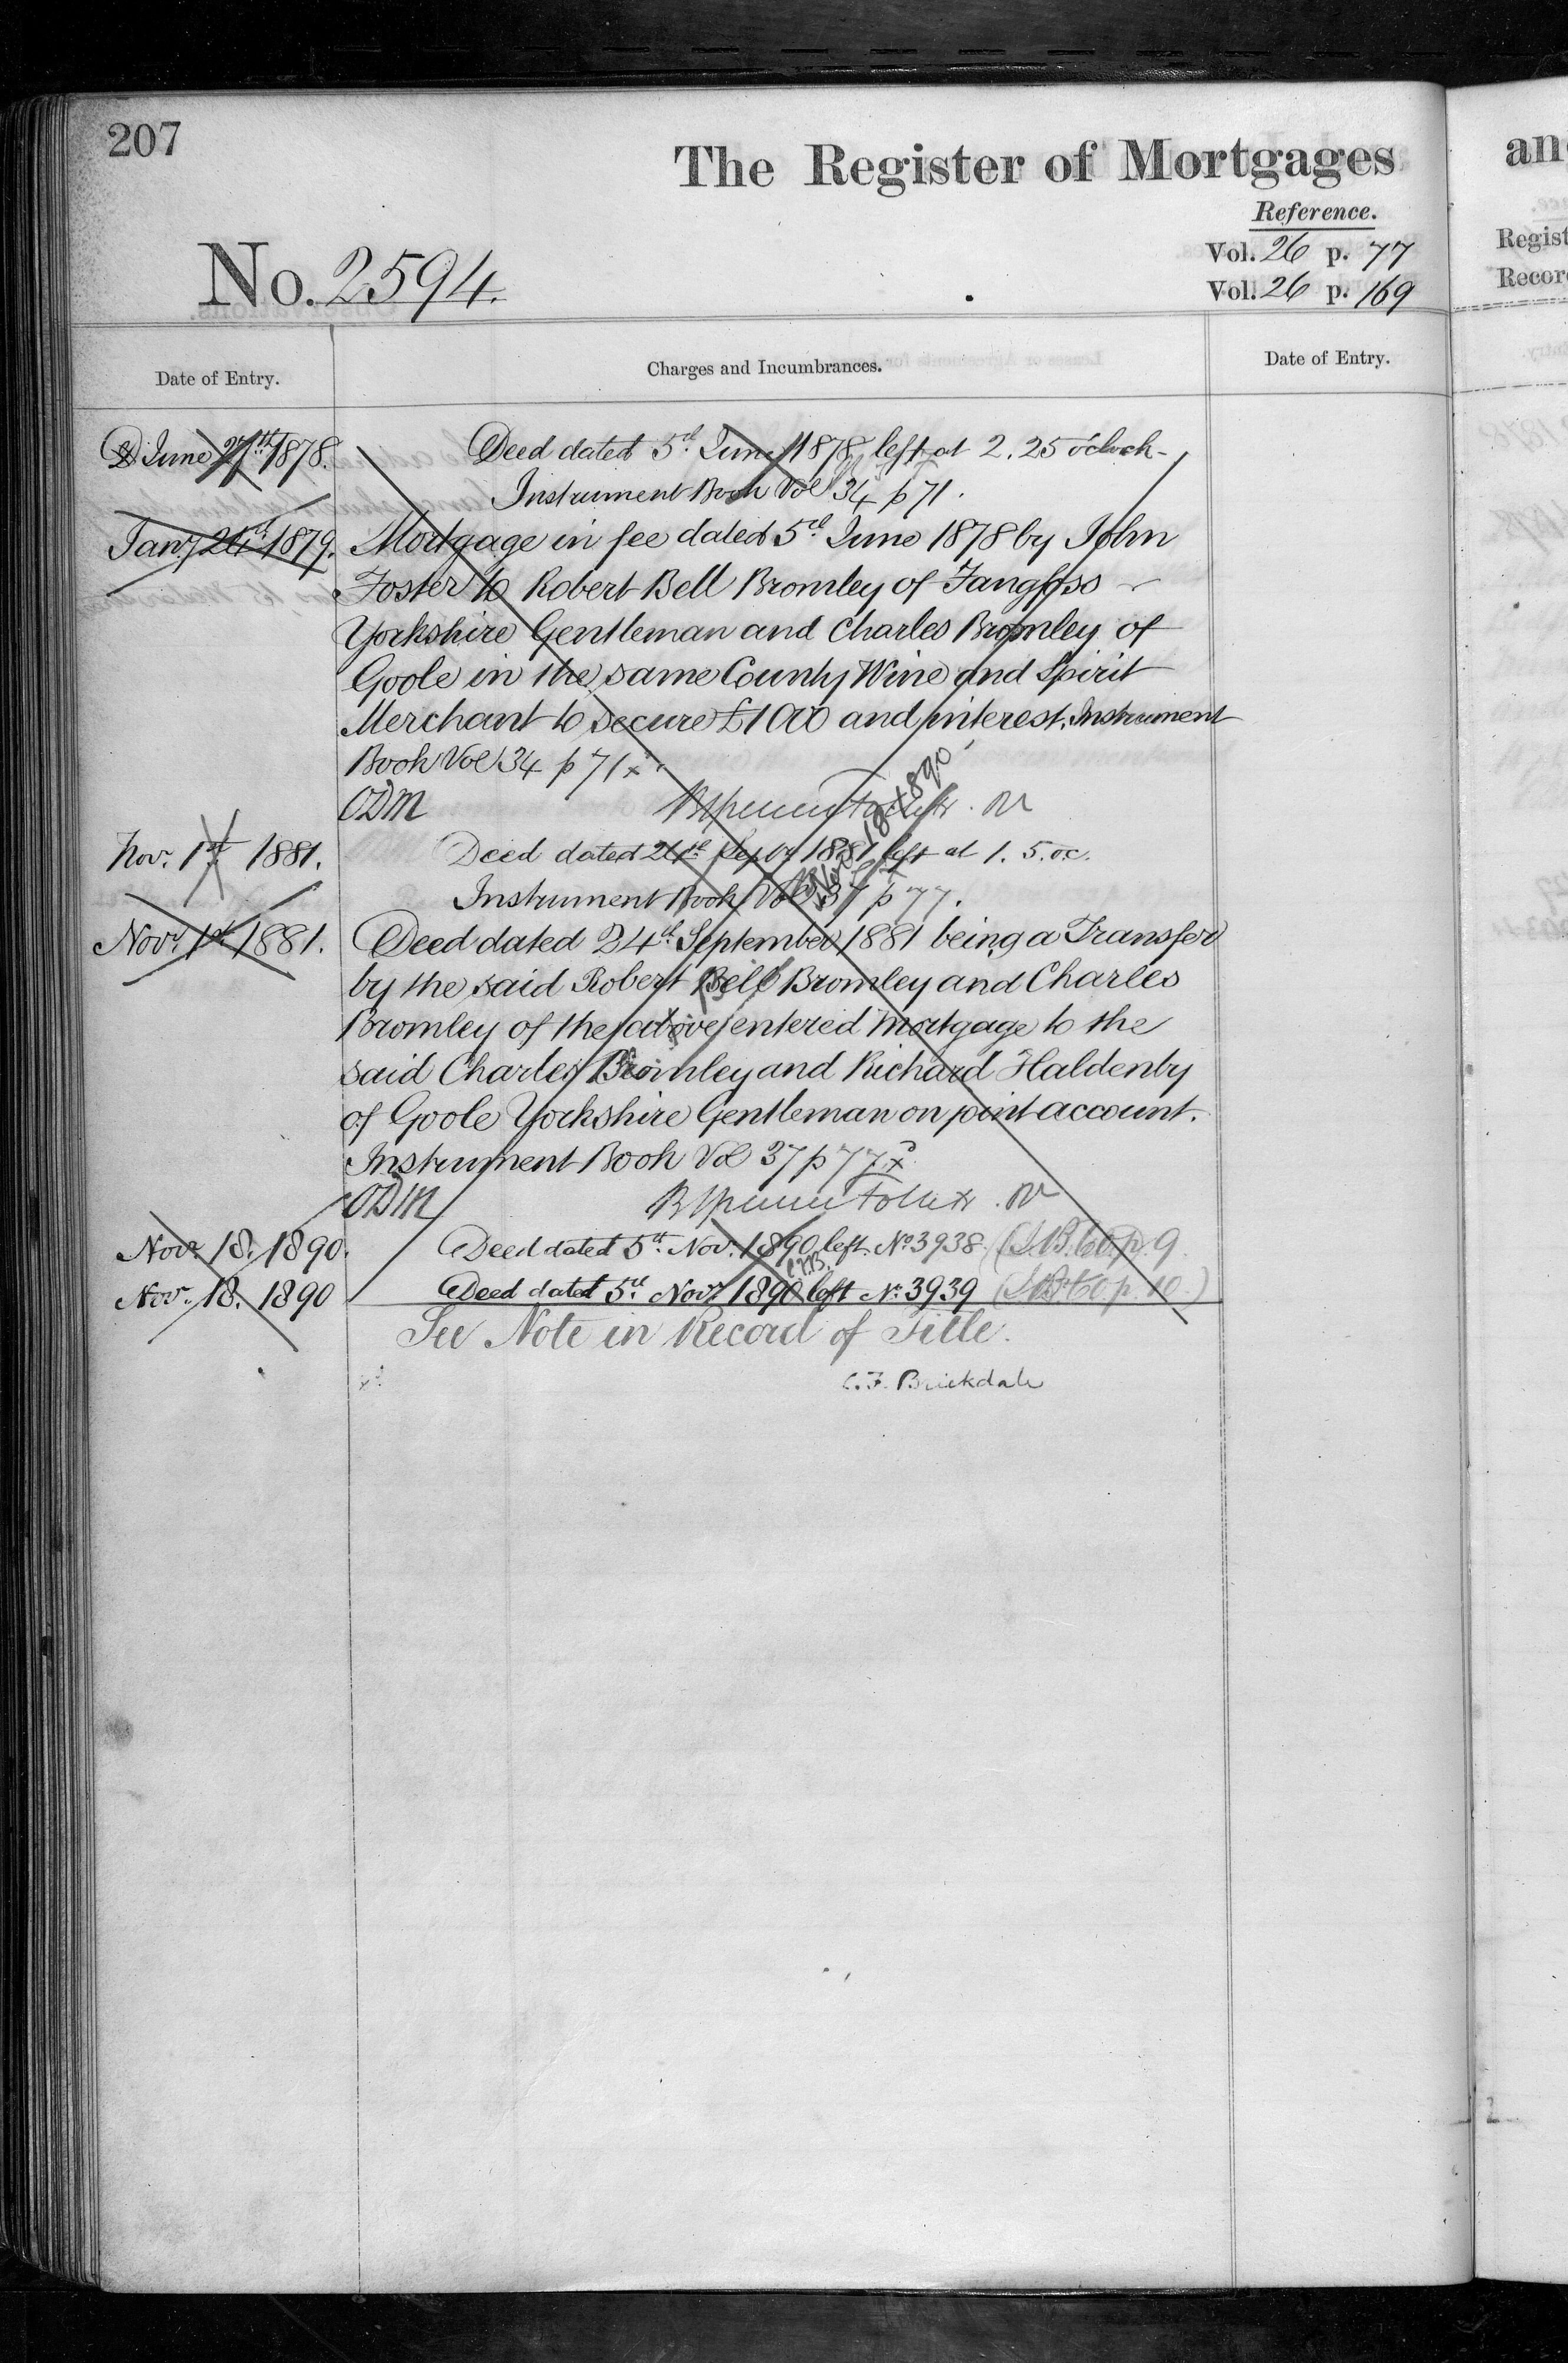 207
The Register of Mortgages
Reference.
Vol. 26 p. 77
No. 2594.
Vol. 26 p. 169
Date of Entry.
Charges and Incumbrances.
Date of Entry.
June 27th 1878.
Deed dated 5th June 1878 left at 2.25 o'clock-
Instrument Book Vol 34 p 71.
Jany 21st 1879.
Mortgage in fee dated 5th June 1878 by John
Foster to Robert Bell Bromley of Fangfoss
Yorkshire Gentleman and Charles Bromley of
Goole in the same County Wine and Spirit
Merchant to secure £1000 and interest. Instrument
Book Vol 34 p 71 x
ODM
Novr. 1st 1881.
Deed dated 24th Septr 1881 left at 1.5. o.c.
Instrument Book Vol 37 p 77.
18 1890
Novr. 1st 1881.
Deed dated 24th September 1881 being a Transfer
by the said Robert Bell Bromley and Charles
Bromley of the above entered Mortgage to the
said Charles Bromley and Richard Haldenby
of Goole Yorkshire Gentleman on joint account.
Instrument Book Vol 37 p 77 x
ODM
Novr. 18. 1890.
Deed dated 5th Nov. 1890 left No 3938 (I.B. 60. p. 9
Novr. 18. 1890
Deed dated 5th Novr 1890 left No 3939 (I.B. 60 p. 10.)
See Note in Record of Title.
C.F. Brickdale
an
Regist
Recor